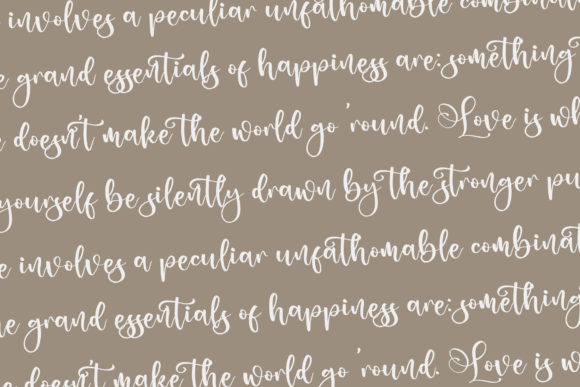 involves a peculiar unfathomable combinat
grand essentials of happiness are: something
doesn't make the world go 'round. Love is wh
yourself be silently drawn by the stronger pu
e involves a peculiar unfathomable combinat
e grand essentials of happiness are: something
doesn't make the world go 'round. Love is w